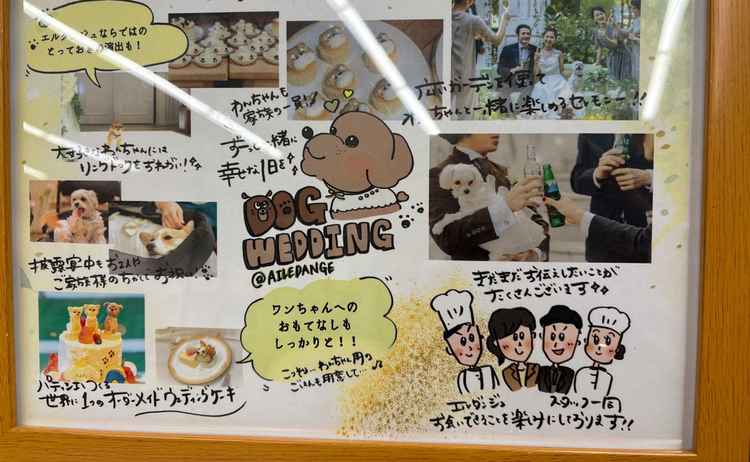 エルダンジュならではの
とっておきの演出も!
わんちゃんも
家族の一員!
ガーデンを使って
ちゃんと一緒に楽しめるセレモニー!!
ずっと一緒に
幸せな1日を
大切なわんちゃんには
リングドッグをおねがい!
DOG
WEDDING
@AILEDANGE
披露宴中もお2人や
ご家族様のちかくでお祝い
ワンちゃんへの
おもてなしも
しっかりと!!
わんちゃん用の
ごはんも用意して
まだまだお伝えしたいことが
たくさんございます
パティシエがつくる
世界に1つのオーダーメイドウェディングケーキ
エルダンジュ
スタッフ一同
お会いできることを楽しみにしております!!